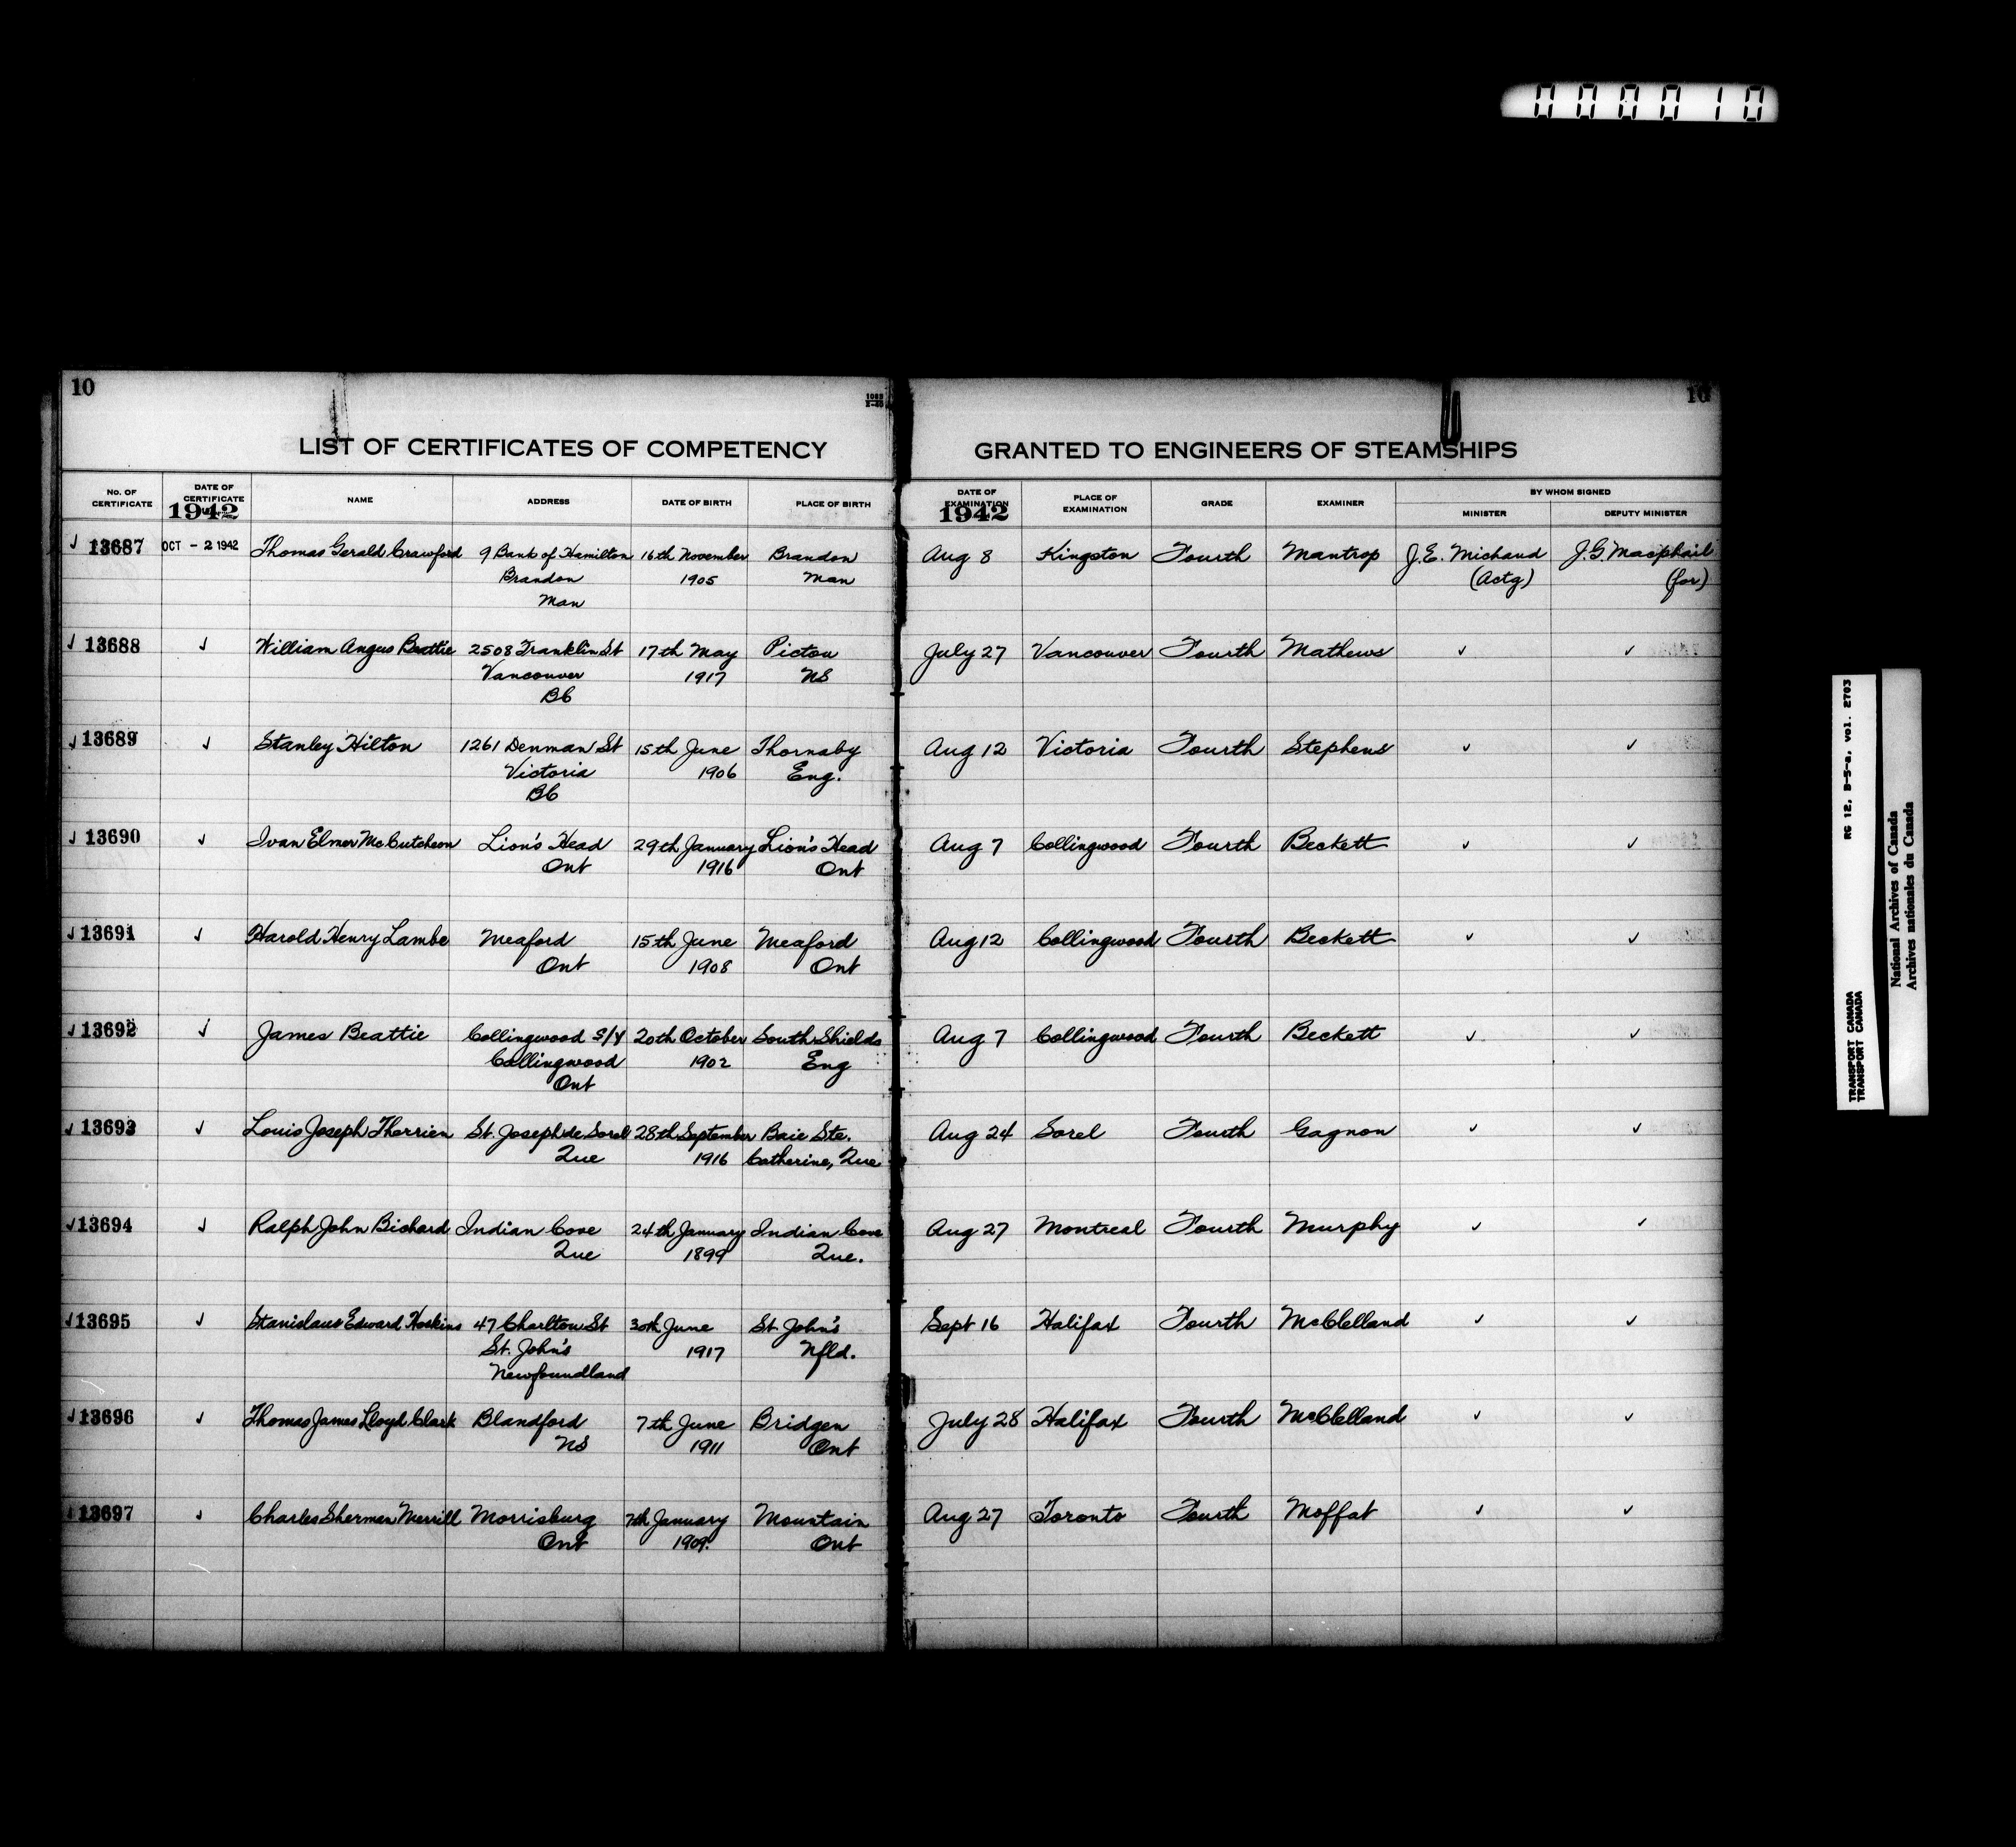 000010
10
1082
10
LIST OF CERTIFICATES OF COMPETENCY
GRANTED TO ENGINEERS OF STEAMSHIPS
No. OF CERTIFICATE
DATE OF CERTIFICATE
1942
NAME
ADDRESS
DATE OF BIRTH
PLACE OF BIRTH
DATE OF EXAMINATION
1942
PLACE OF EXAMINATION
GRADE
EXAMINER
BY WHOM SIGNED
MINISTER
DEPUTY MINISTER
✓ 13687 OCT - 2 1942 Thomas Gerald Crawford 9 Bank of Hamilton 16th November Brandon Aug 8 Kingston Fourth Mantrop J.E. Michaud J.G. Macphail
Brandon 1905 Man (Actg) (for)
Man
✓ 13688 ✓ William Angus Beattie 2508 Franklin St 17th May Pictou July 27 Vancouver Fourth Mathews ✓ ✓
Vancouver 1917 NS
BC
✓ 13689 ✓ Stanley Hilton 1261 Denman St 15th June Thornaby Aug 12 Victoria Fourth Stephens ✓ ✓
Victoria 1906 Eng.
BC
✓ 13690 ✓ Ivan Elmer McCutcheon Lion's Head 29th January Lion's Head Aug 7 Collingwood Fourth Beckett ✓ ✓
Ont 1916 Ont
✓ 13691 ✓ Harold Henry Lambe Meaford 15th June Meaford Aug 12 Collingwood Fourth Beckett ✓ ✓
Ont 1908 Ont
✓ 13692 ✓ James Beattie Collingwood S/Y 20th October South Shields Aug 7 Collingwood Fourth Beckett ✓ ✓
Collingwood 1902 Eng
Ont
✓ 13693 ✓ Louis Joseph Therrien St. Joseph de Sorel 28th September Baie Ste. Aug 24 Sorel Fourth Gagnon ✓ ✓
Que 1916 Catherine, Que
✓ 13694 ✓ Ralph John Bichard Indian Cove 24th January Indian Cove Aug 27 Montreal Fourth Murphy ✓ ✓
Que 1899 Que.
✓ 13695 ✓ Stanislaus Edward Hoskins 47 Charlton St 30th June St. John's Sept 16 Halifax Fourth McClelland ✓ ✓
St. John's 1917 Nfld.
Newfoundland
✓ 13696 ✓ Thomas James Lloyd Clark Blandford 7th June Bridgen July 28 Halifax Fourth McClelland ✓ ✓
NS 1911 Ont
✓ 13697 ✓ Charles Sherman Merrill Morrisburg 7th January Mountain Aug 27 Toronto Fourth Moffat ✓ ✓
Ont 1909. Ont
RG 12, B-5-a, vol. 2703
TRANSPORT CANADA
TRANSPORT CANADA
National Archives of Canada
Archives nationales du Canada